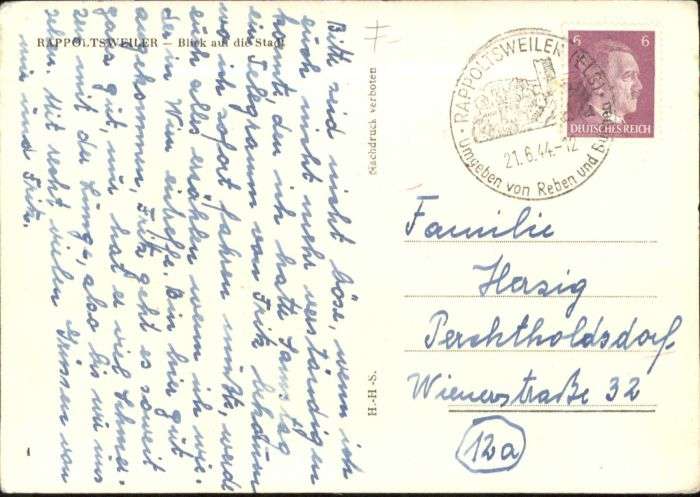 RAPPOLTSWEILER – Blick auf die Stadt
Bitte sind nicht böse, wenn ich
euch nicht mehr verständigen
konnte, den ich hatte Samstag
ein Telegramm von Fritz bekomm
wo ich sofort fahren mußte, werde
euch alles erzählen wenn ich wie-
der in Wien eintreffe. Bin hier gut
angekommen, Fritz geht es soweit
ganz gut, hat er viel Schmer-
zen mit der Lunge, also bis wir uns
sehen. Mit recht vielen Grüssen von
mir und Fritz.
Nachdruck verboten
H.-H.-S.
RAPPOLTSWEILER (ELS)
21.6.44.-12
Umgeben von Reben und
6 6
DEUTSCHES REICH
Familie
Herzig
Perchtholdsdorf
Wienerstraße 32
12a